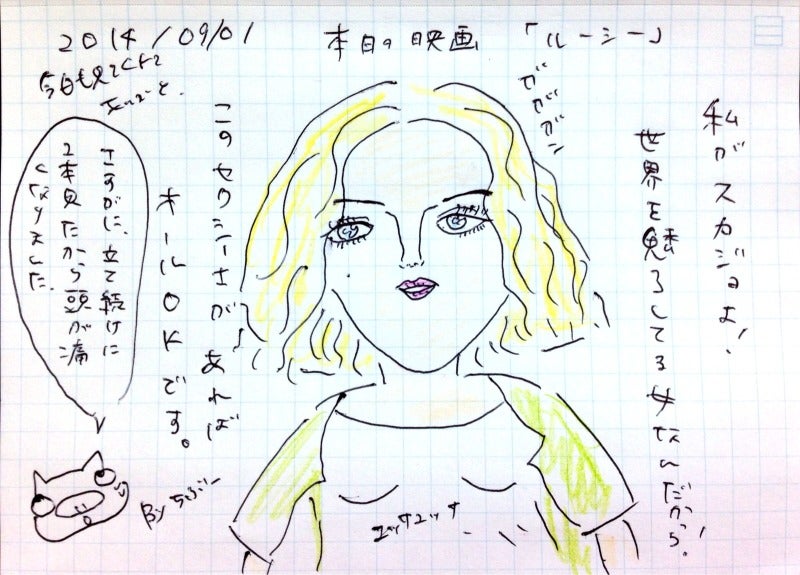 2014/09/01 本日の映画 「ルーシー」
今日も見てくれて
私がスカジョよ!
世界を魅了してる女なんだから!
ガガガン
このセクシーさがあれば
オールOKです。
さすがに、立て続けに
2本見たから頭が痛
くなりました。
ユッサユッサ
By